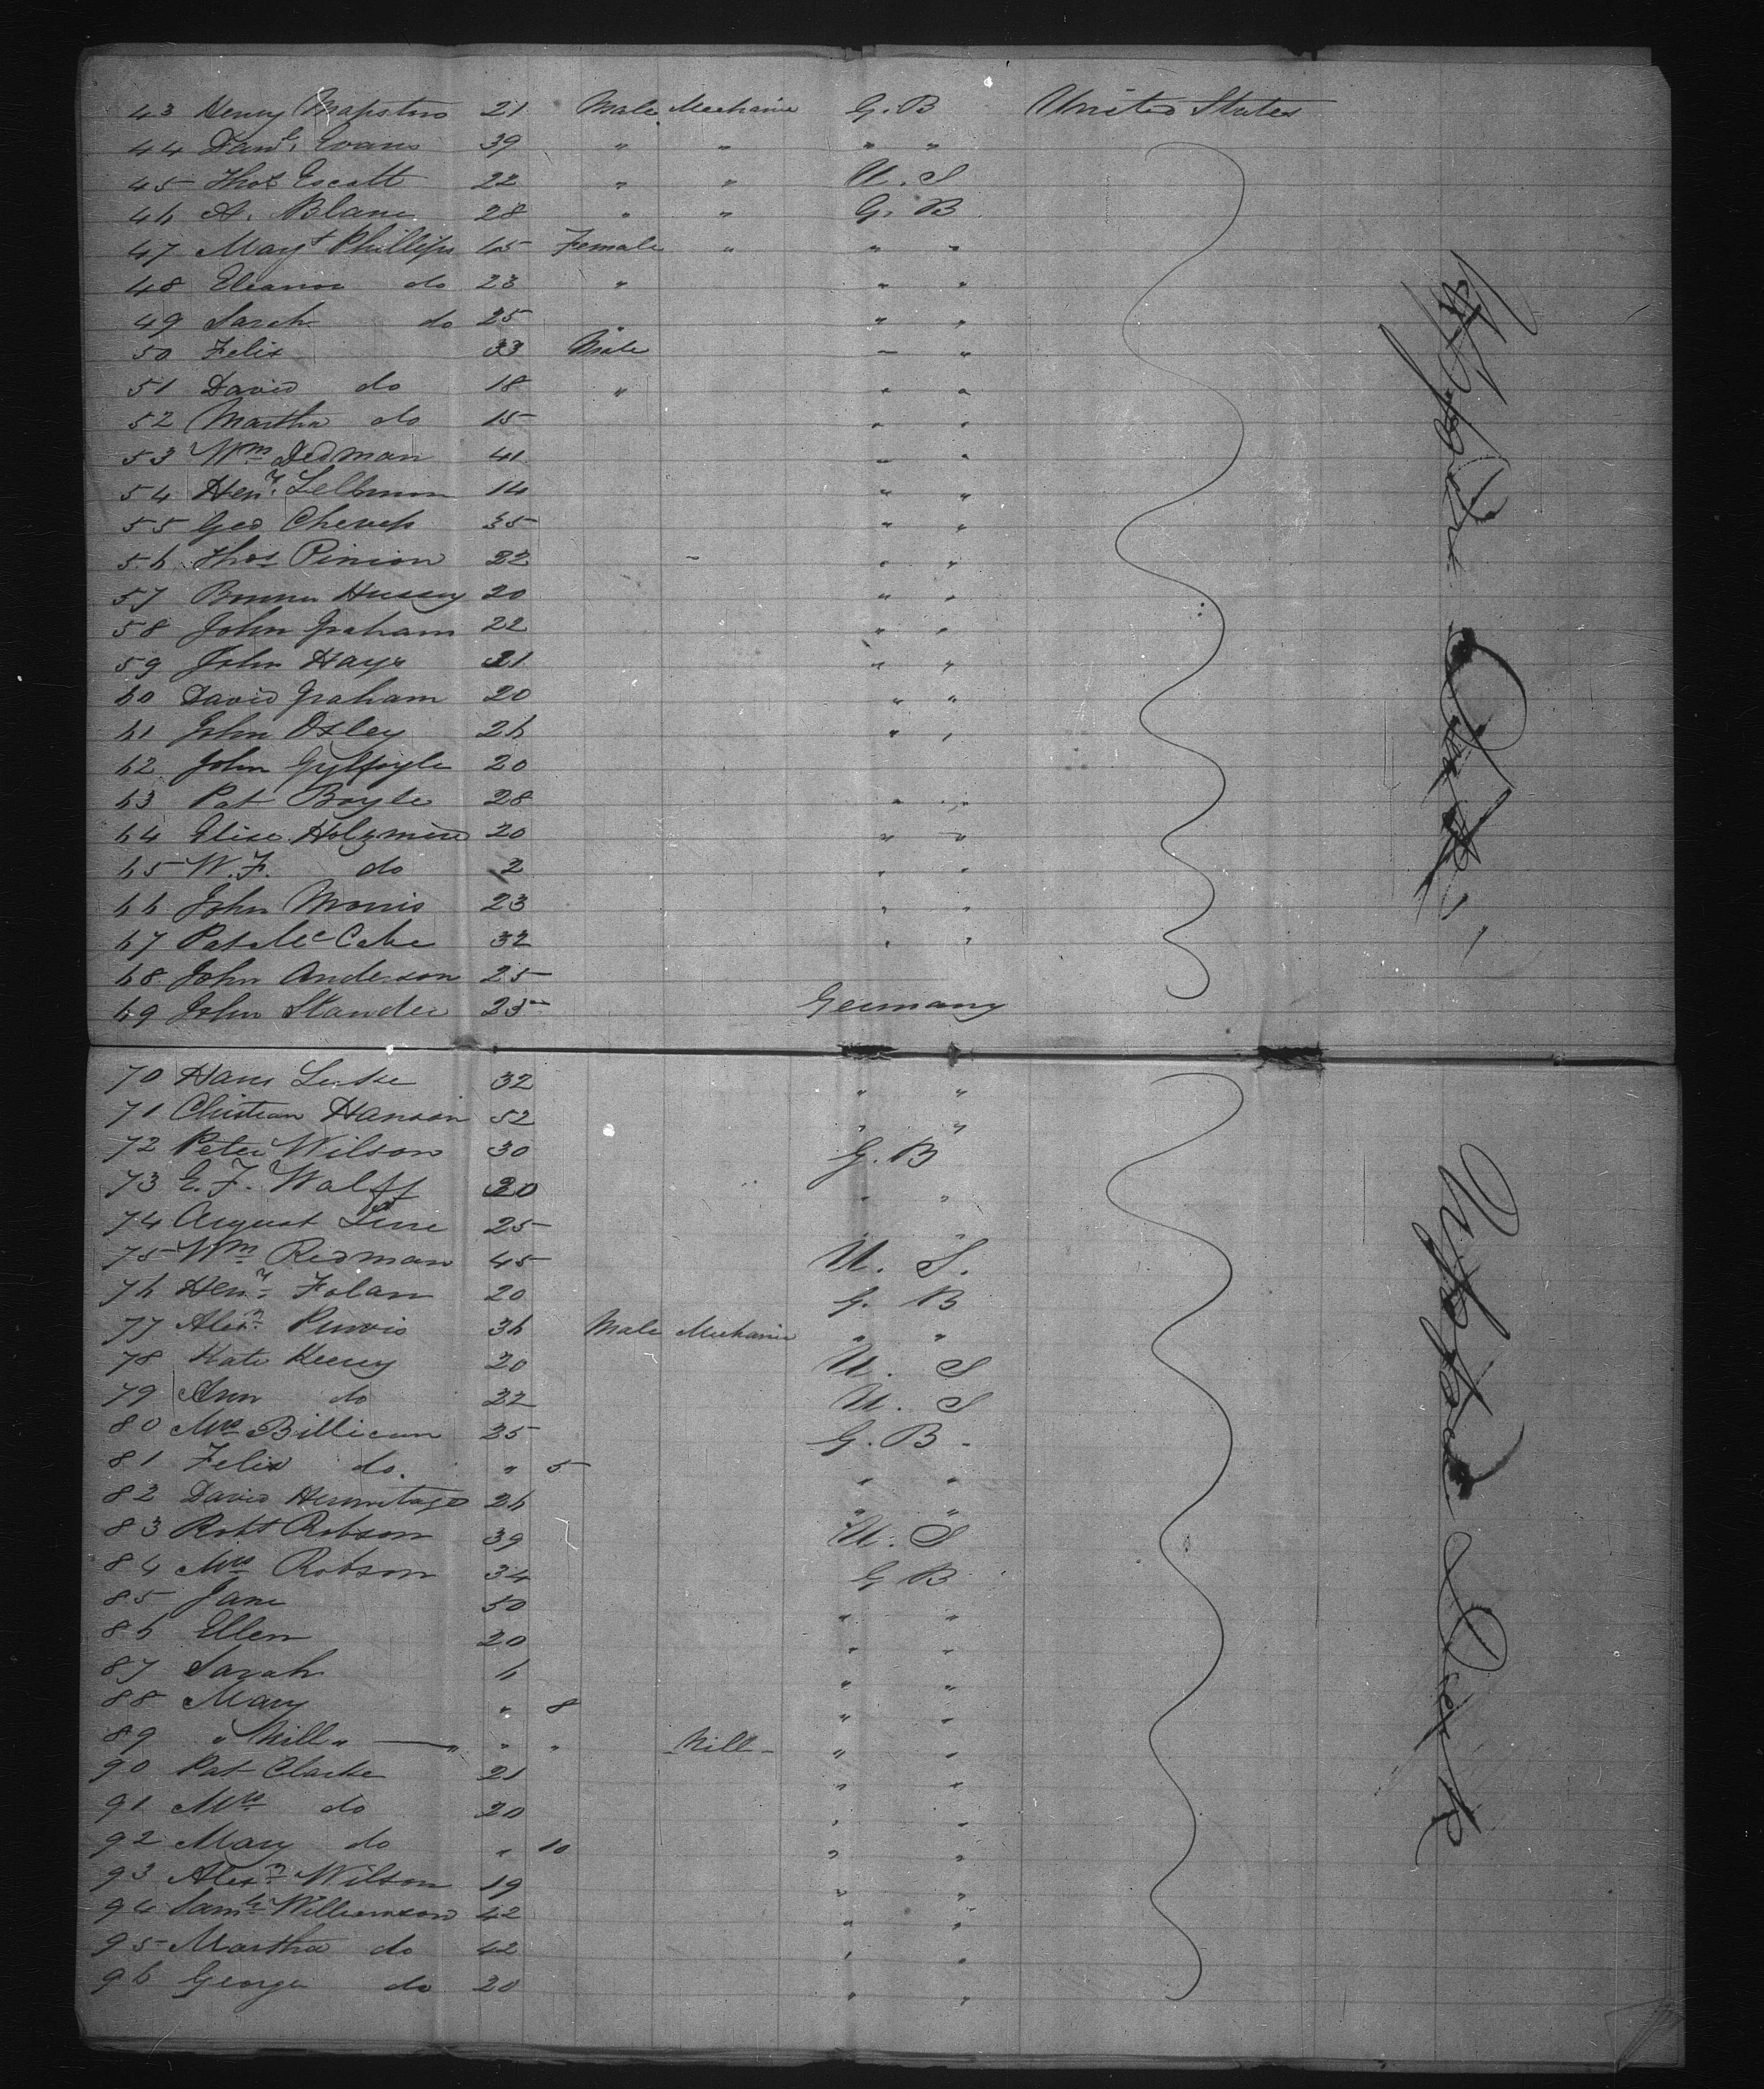 43 Henry Mapston 21 Male Mechanic G. B United States
44 Danl. Evans 39 " " " "
45 Thos Escott 22 " " U. S
46 A. Blanc 28 " " G. B
47 Mary Phillips 15 Female " " "
48 Eleanor do 23 " " "
49 Sarah do 25 " " "
50 Felix 33 Male " "
51 David do 18 " " "
52 Martha do 15 " "
53 Wm Dedman 41 " "
54 Heny. 14 " "
55 Geo 35 " "
56 Thos Pinion 22 " "
57 Hussey 20 " "
58 John Graham 22 " "
59 John Hays 21 " "
60 David Graham 20 " "
61 John Oxley 26 " "
62 John Gylfoyle 20
63 Pat Boyle 28 " "
64 Elise 20 " "
65 W. F. do 2 " "
66 John Morris 23 " "
67 Pat McCabe 32 " "
68 John Anderson 25
69 John Stander 25 Germany
70 Hans 32 " "
71 Christian Hanson 52 " "
72 Peter Wilson 30 G. B
73 E. F. Walff 30 " "
74 August 25 " "
75 Wm Redman 45 U. S.
76 Heny. Folan 20 G. B
77 Alexr. Purvis 36 Male Mechanic " "
78 Kate 20 U. S
79 Ann do 22 U. S
80 Mrs Billican 35 G. B
81 Felix do. " 5 " "
82 David Hermitage 26 " "
83 Robt Robson 39 U. S
84 Mrs Robson 34 G B
85 Jane 50 " "
86 Ellen 20 " "
87 Sarah 6 " "
88 Mary " 8 " "
89 " Nill " " " " Nill " "
90 Pat Clarke 21 " "
91 Mrs do 20 " "
92 Mary do " 10 " "
93 Alexr Wilson 19 " "
94 Saml Williamson 42 " "
95 Martha do 42 " "
96 George do 20 " "
Upper Deck
Upper Deck